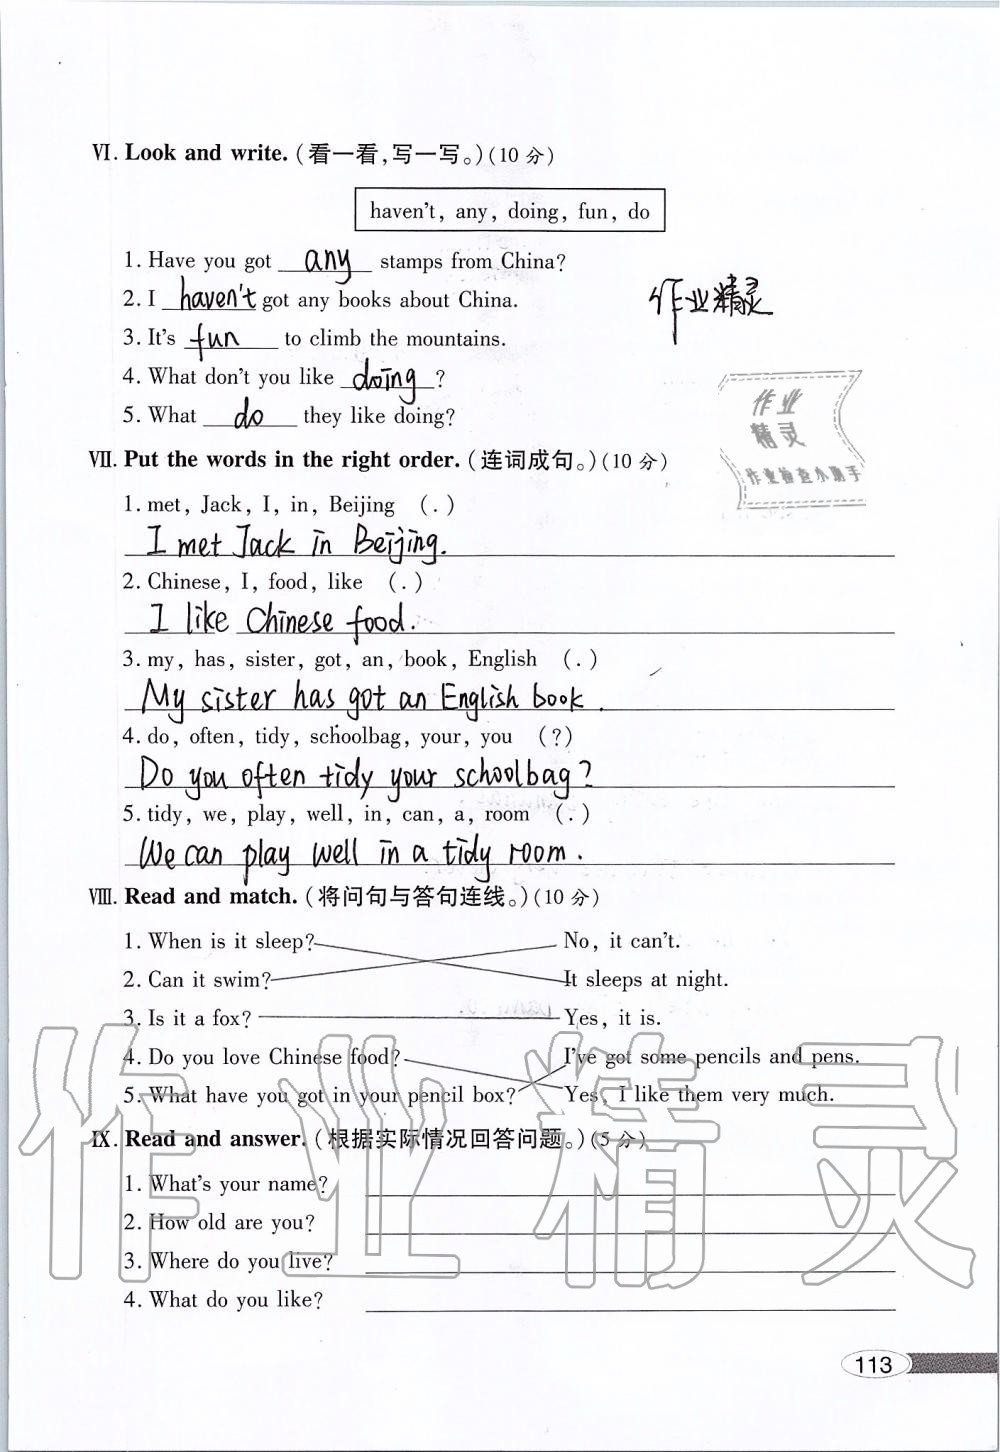 VI. Look and write. (看一看,写一写。)(10 分)
haven't, any, doing, fun, do
1. Have you got any stamps from China?
2. I haven't got any books about China.
作业精灵
3. It's fun to climb the mountains.
4. What don't you like doing?
作业
精灵
5. What do they like doing?
作业检查小助手
VII. Put the words in the right order. (连词成句。)(10 分)
1. met, Jack, I, in, Beijing (.)
I met Jack in Beijing.
2. Chinese, I, food, like (.)
I like Chinese food.
3. my, has, sister, got, an, book, English (.)
My sister has got an English book.
4. do, often, tidy, schoolbag, your, you (?)
Do you often tidy your schoolbag?
5. tidy, we, play, well, in, can, a, room (.)
We can play well in a tidy room.
VIII. Read and match. (将问句与答句连线。)(10 分)
1. When is it sleep? No, it can't.
2. Can it swim? It sleeps at night.
3. Is it a fox? Yes, it is.
4. Do you love Chinese food? I've got some pencils and pens.
5. What have you got in your pencil box? Yes, I like them very much.
作业精灵
IX. Read and answer. (根据实际情况回答问题。)(5 分)
1. What's your name?
2. How old are you?
3. Where do you live?
4. What do you like?
113